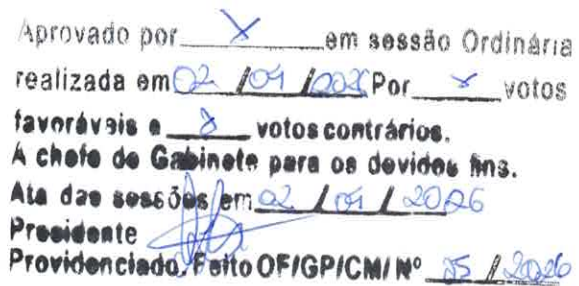 Aprovado por X em sessão Ordinária
realizada em 02 / 04 / 2026 Por X votos
favoráveis e votos contrários.
A chefe de Gabinete para os devidos fins.
Ata das sessões em 02 / 04 / 2026
Presidente
Providenciado. Feito OF/GP/CM/ Nº / 2026